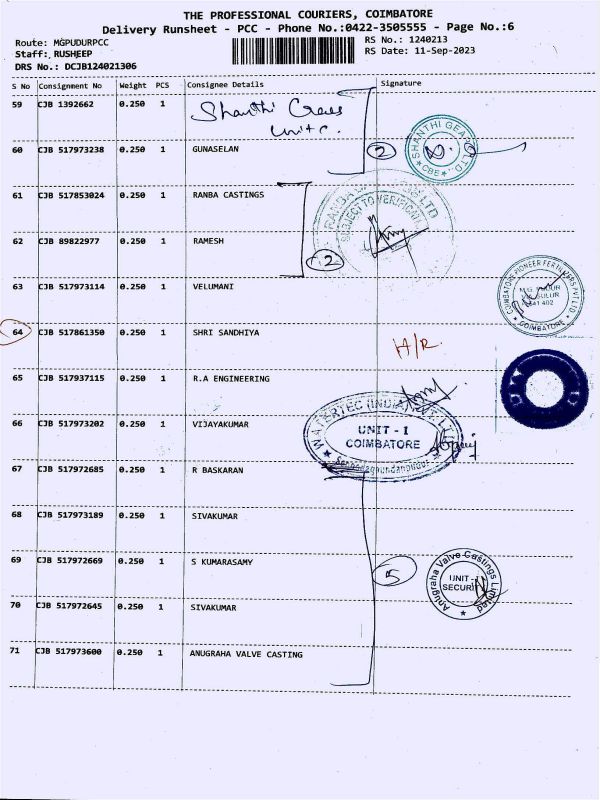 THE PROFESSIONAL COURIERS, COIMBATORE
Delivery Runsheet - PCC - Phone No.:0422-3505555 - Page No.:6
Route: MGPUDURPCC
RS No.: 1240213
Staff: RUSHEEP
RS Date: 11-Sep-2023
DRS No.: DCJB124021306
S No Consignment No Weight PCS Consignee Details Signature
59 CJB 1392662 0.250 1 Shanthi Gears
Unit
60 CJB 517973238 0.250 1 GUNASELAN 2 SHANTHI GEARS LTD CBE
61 CJB 517853024 0.250 1 RANBA CASTINGS
RANBA LTD
SUBJECT TO VERIFICATION
62 CJB 89822977 0.250 1 RAMESH 2
63 CJB 517973114 0.250 1 VELUMANI
COIMBATORE PIONEER FERTILIZERS PVT LTD
SULUR
641 402
COIMBATORE
64 CJB 517861350 0.250 1 SHRI SANDHIYA H/R
65 CJB 517937115 0.250 1 R.A ENGINEERING
66 CJB 517973202 0.250 1 VIJAYAKUMAR
WATERTEC INDIA PVT LTD
UNIT - I
COIMBATORE
67 CJB 517972685 0.250 1 R BASKARAN
68 CJB 517973189 0.250 1 SIVAKUMAR
69 CJB 517972669 0.250 1 S KUMARASAMY 5
Anugraha Valve Castings Limited
UNIT
70 CJB 517972645 0.250 1 SIVAKUMAR
71 CJB 517973600 0.250 1 ANUGRAHA VALVE CASTING